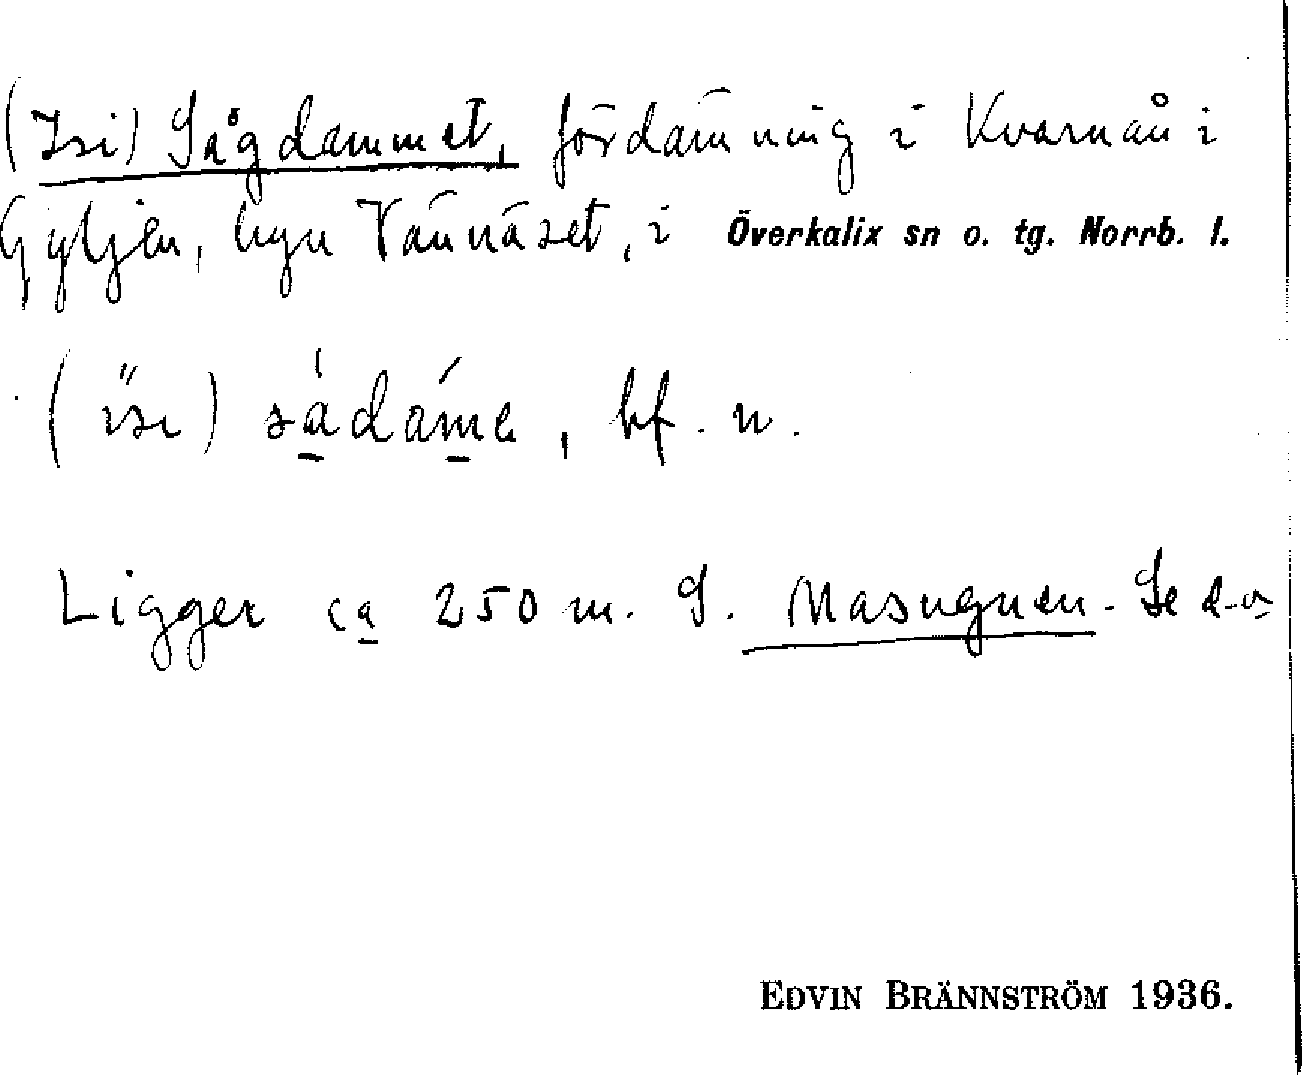 (Isi) Sågdammet, fördämning i Kvarnån i
Gyljen, byn Vännäset, i Överkalix sn o. tg. Norrb. l.
bf. n.
Ligger ca 250 m. S. Masugnen. Se d.o.
EDVIN BRÄNNSTRÖM 1936.